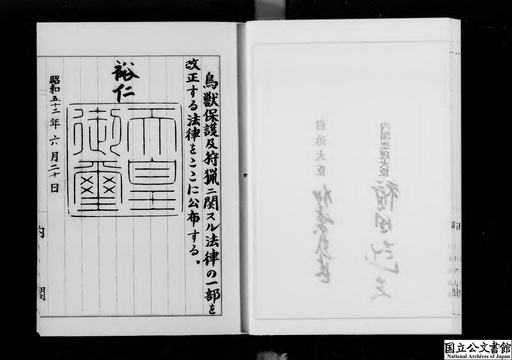 鳥獣保護及狩猟ニ関スル法律の一部を
改正する法律をここに公布する。
裕仁
天皇
御璽
昭和五十三年六月二十日
内閣
内閣総理大臣
自治大臣
国立公文書館
National Archives of Japan